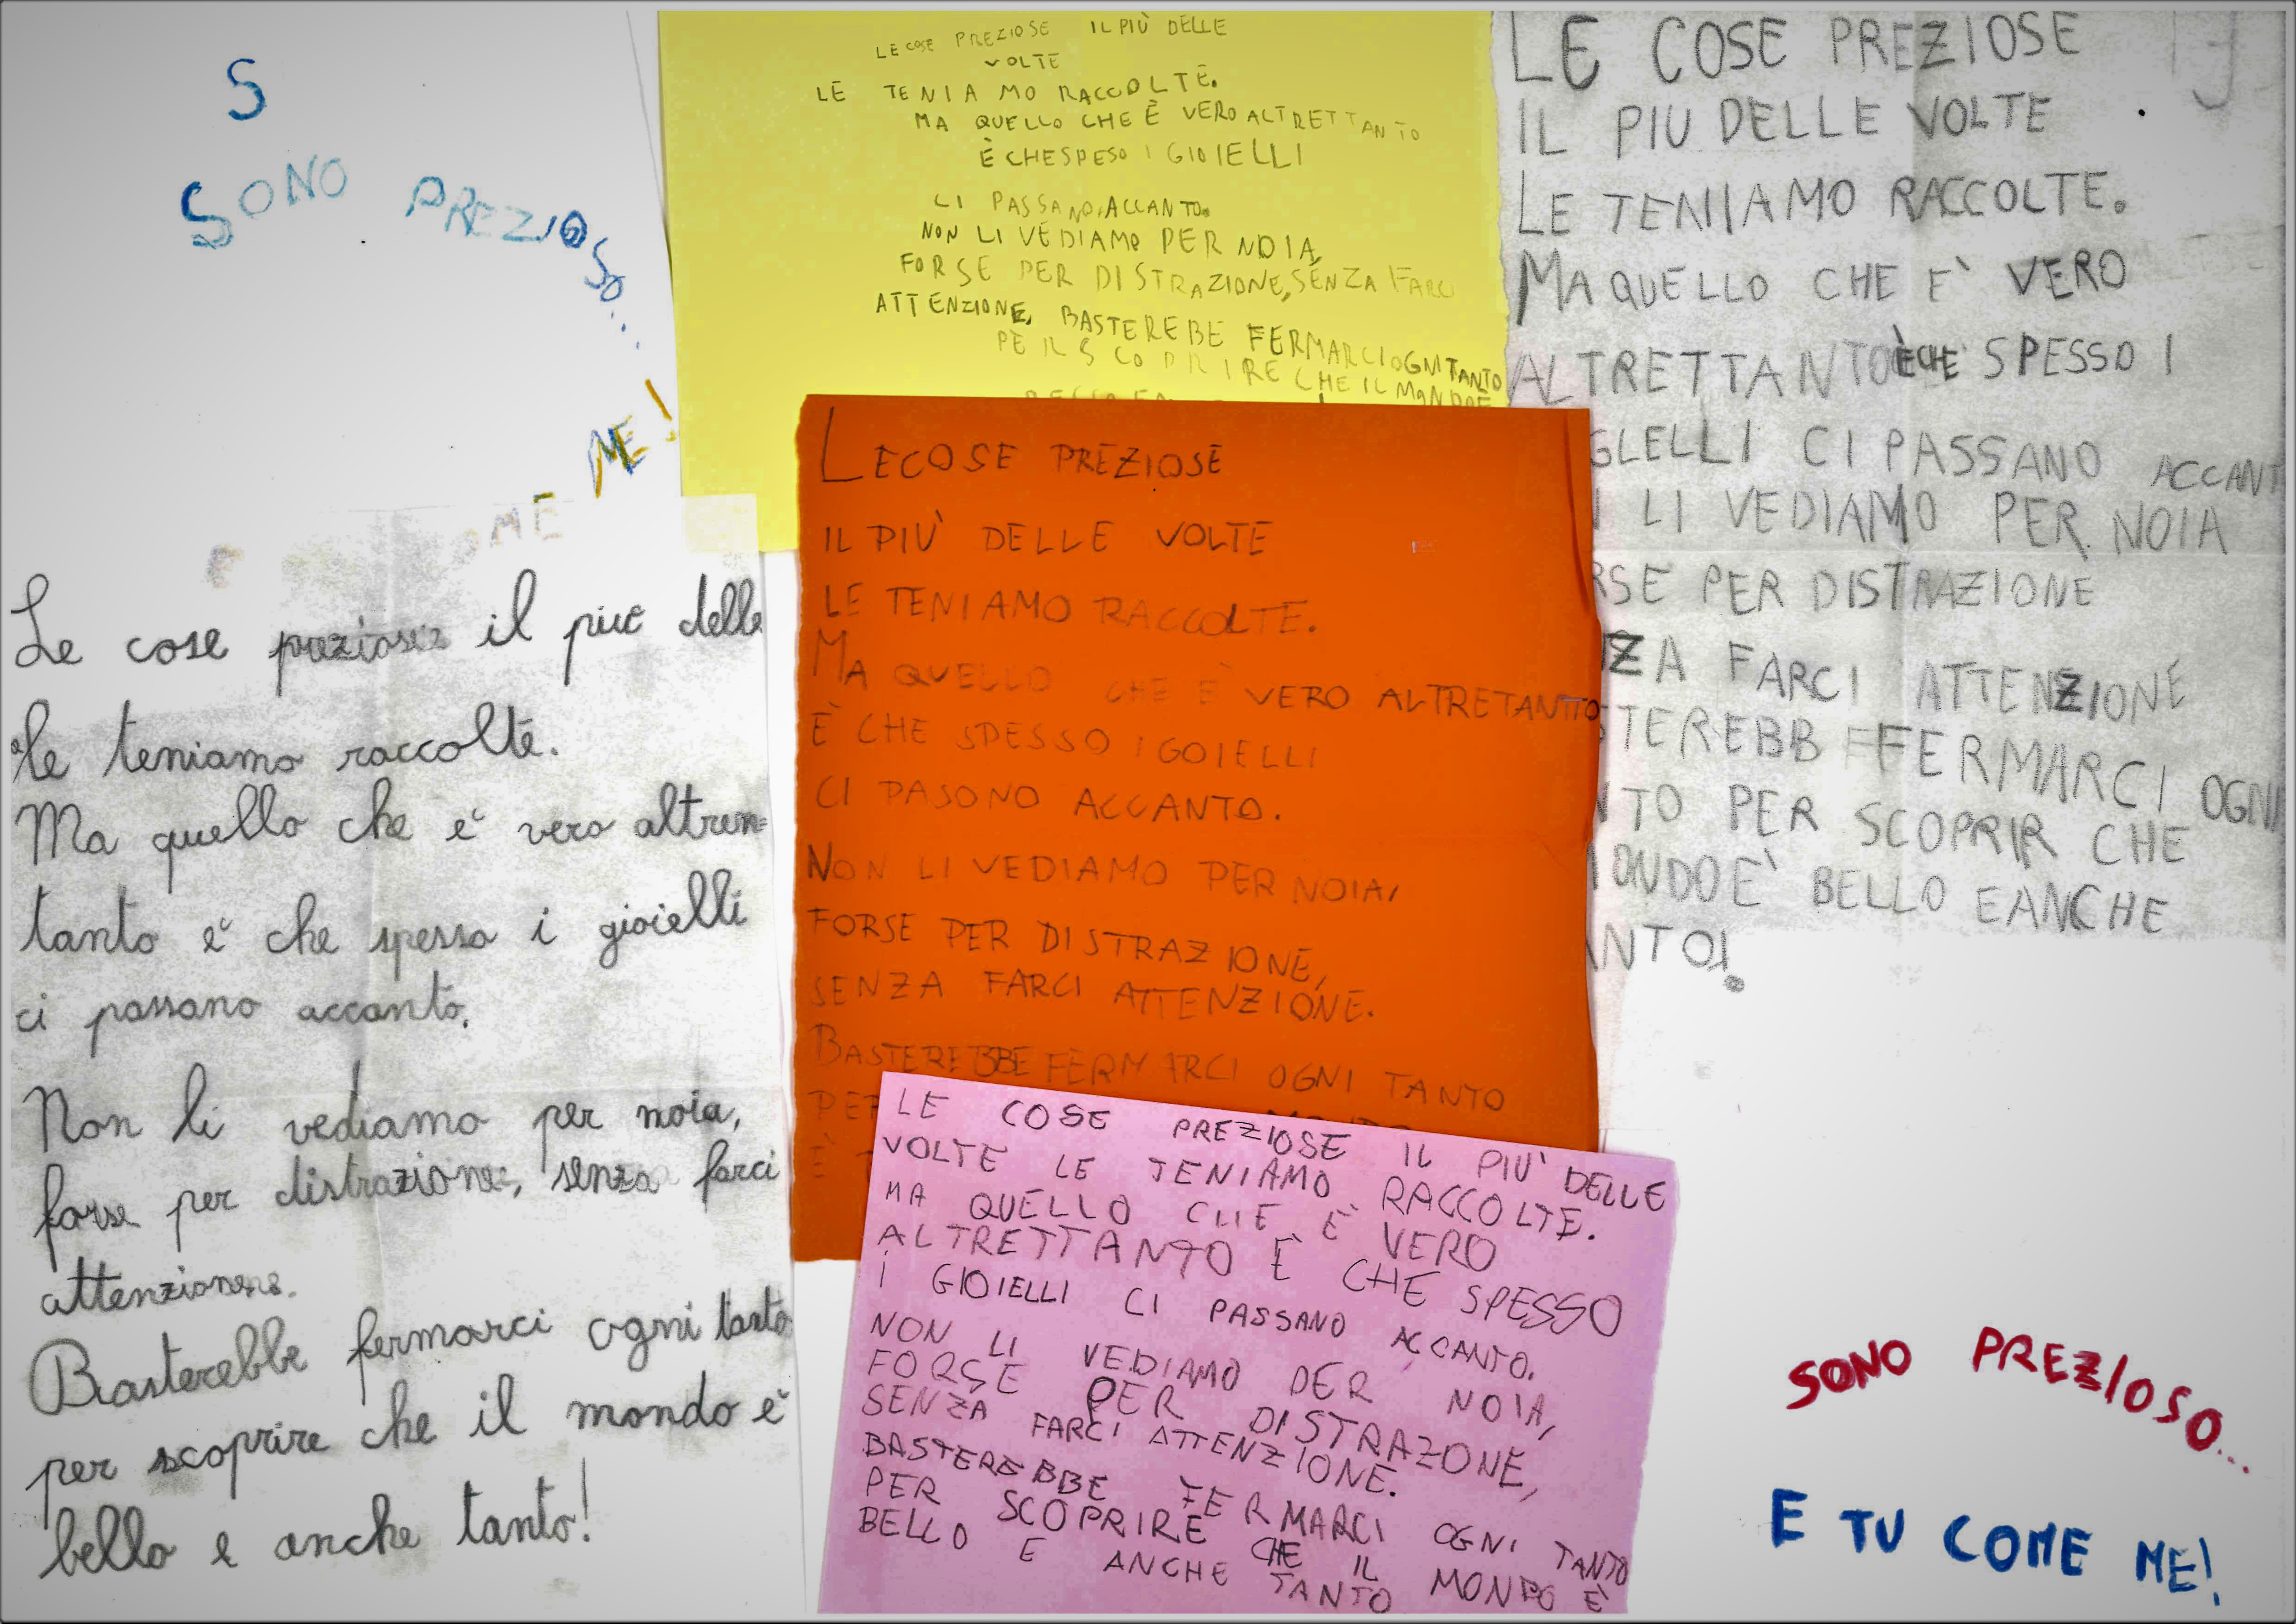 S
SONO PREZIOSO...
E COME ME!
Le cose preziose il più delle
le teniamo raccolte.
Ma quello che è vero altren=
tanto è che spesso i gioielli
ci passano accanto.
Non li vediamo per noia,
forse per distrazione, senza farci
attenzione.
Basterebbe fermarci ogni tanto
per scoprire che il mondo è
bello e anche tanto!
LE COSE PREZIOSE IL PIÙ DELLE
VOLTE
LE TENIAMO RACCOLTE.
MA QUELLO CHE È VERO ALTRETTANTO
È CHE SPESO I GIOIELLI
CI PASSANO ACCANTO.
NON LI VEDIAMO PER NOIA,
FORSE PER DISTRAZIONE, SENZA FARCI
ATTENZIONE, BASTEREBE FERMARCI OGNI TANTO
PER SCOPRIRE CHE IL MONDO È
LECOSE PREZIOSE
IL PIÙ DELLE VOLTE
LE TENIAMO RACCOLTE.
MA QUELLO CHE È VERO ALTRETANTTO
È CHE SPESSO I GOIELLI
CI PASONO ACCANTO.
NON LI VEDIAMO PER NOIA,
FORSE PER DISTRAZIONE,
SENZA FARCI ATTENZIONE.
BASTEREBBE FERMARCI OGNI TANTO
PER
È
LE COSE PREZIOSE IL PIÙ DELLE
VOLTE LE TENIAMO RACCOLTE.
MA QUELLO CHE È VERO
ALTRETTANTO È CHE SPESSO
I GIOIELLI CI PASSANO ACCANTO.
NON LI VEDIAMO PER NOIA,
FORSE PER DISTRAZONE,
SENZA FARCI ATTENZIONE.
BASTEREBBE FERMARCI OGNI TANTO
PER SCOPRIRE CHE IL MONDO È
BELLO E ANCHE TANTO
LE COSE PREZIOSE
IL PIU DELLE VOLTE
LE TENIAMO RACCOLTE.
MA QUELLO CHE E' VERO
ALTRETTANTO È CHE SPESSO I
GLELLI CI PASSANO ACCANT
LI VEDIAMO PER NOIA
RSE PER DISTRAZIONE
ZA FARCI ATTENZIONE
STEREBB FFERMARCI OGNI
NTO PER SCOPRIR CHE
MONDO E' BELLO E ANCHE
ANTO!
SONO PREZIOSO...
E TU COME ME!